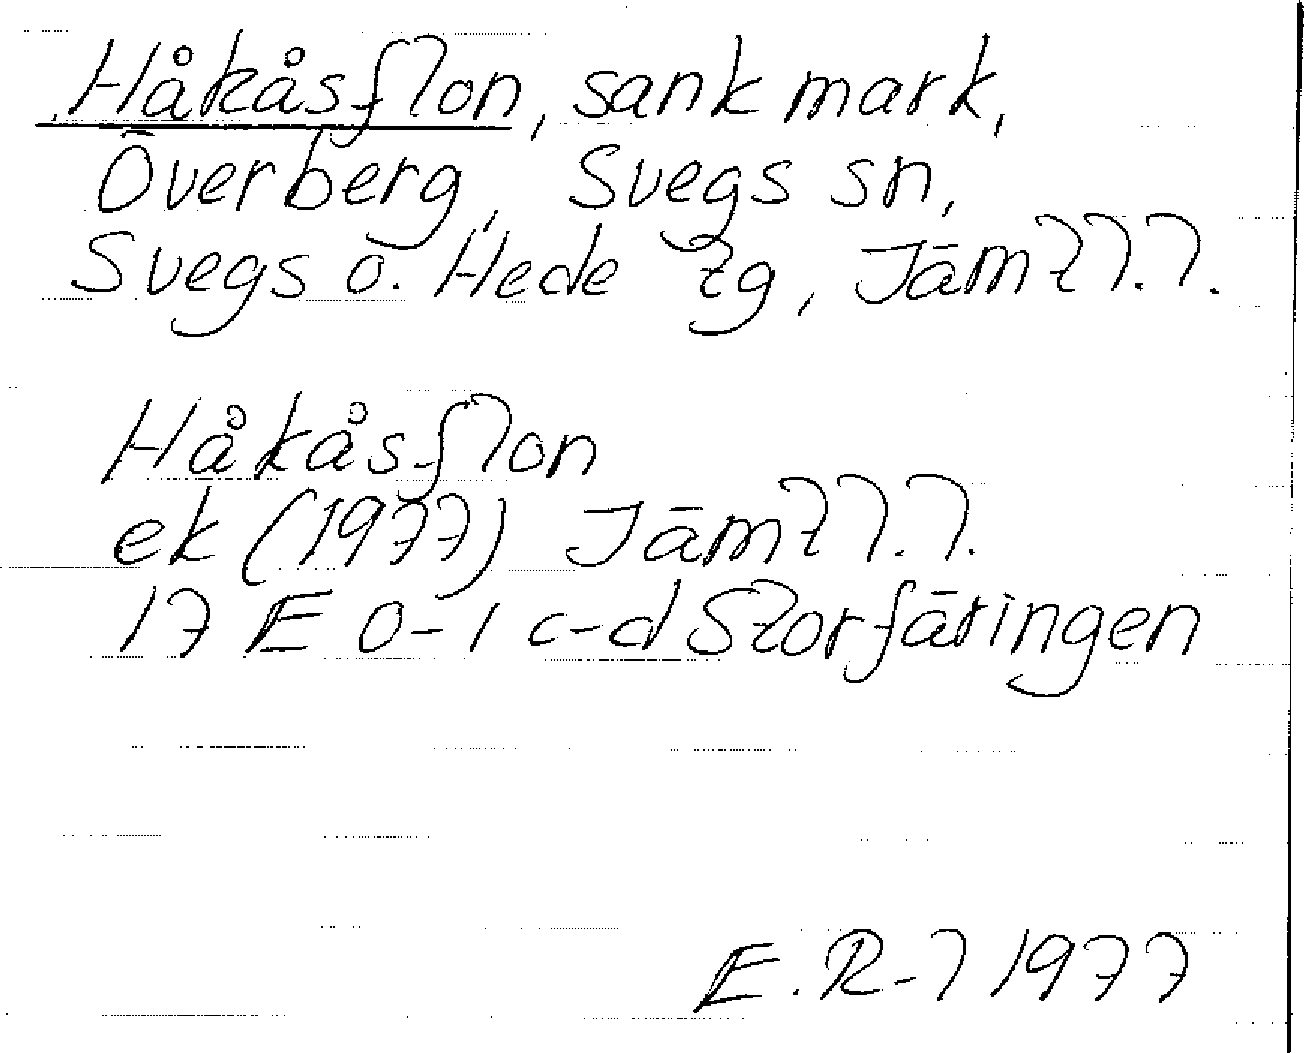 Håkåsflon, sank mark,
Överberg, Svegs sn,
Svegs o. Hede tg, Jämtl.l.
Håkåsflon
ek (1977) Jämtl.l.
17 E 0-1 c-d Storfäringen
E. R-l 1977